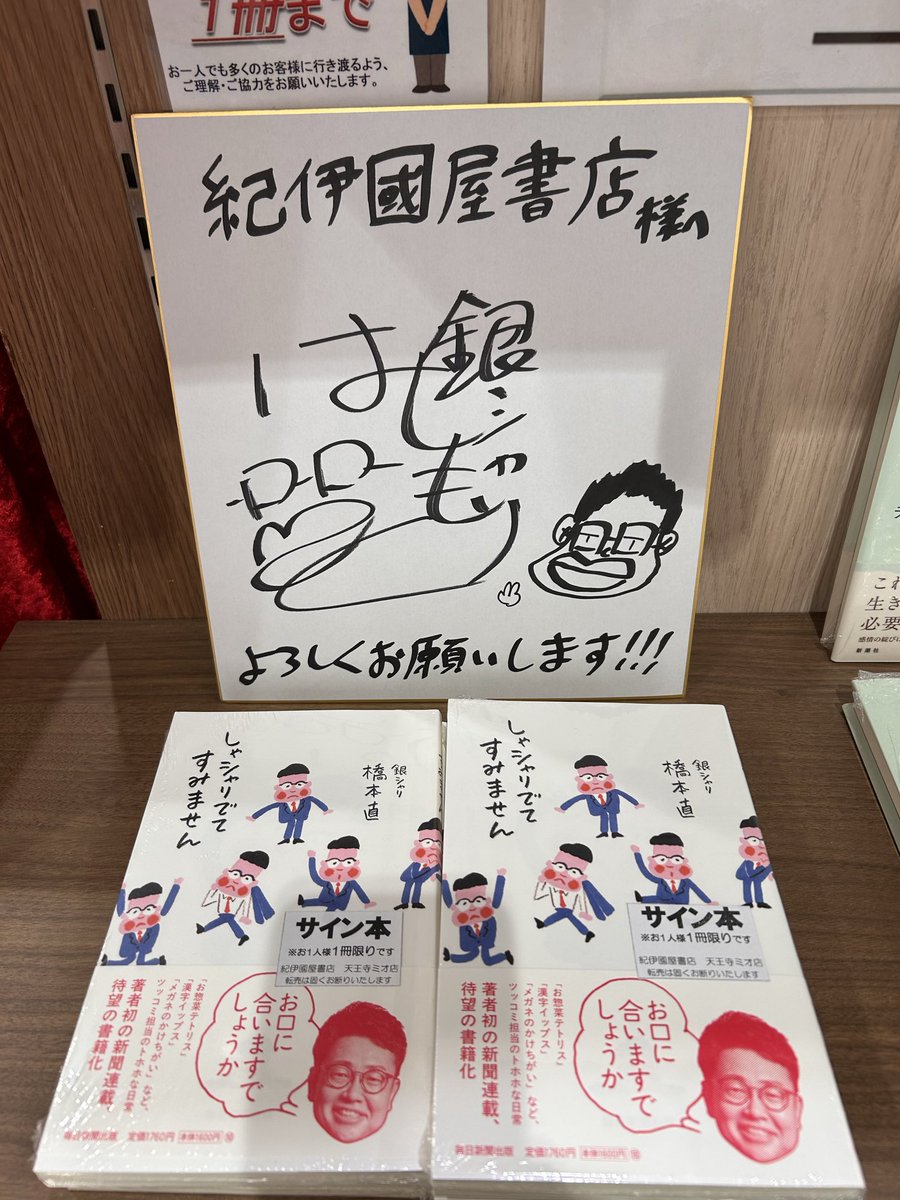 1冊まで
お一人でも多くのお客様に行き渡るよう、
ご理解・ご協力をお願いいたします。
紀伊國屋書店様へ
銀シャリ
はしもと
よろしくお願いします!!!
しゃシャリでて
すみません
銀シャリ
橋本直
サイン本
※お1人様1冊限りです
紀伊國屋書店 天王寺ミオ店
転売は固くお断りいたします
お口に
合いますで
しょうか
「お惣菜テトリス」
「漢字イップス」
「メガネのかけちがい」など、
ツッコミ担当のトホホな日常
著者初の新聞連載、
待望の書籍化
毎日新聞出版 定価1760円 本体1600円⑩
しゃシャリでて
すみません
銀シャリ
橋本直
サイン本
※お1人様1冊限りです
紀伊國屋書店 天王寺ミオ店
転売は固くお断りいたします
お口に
合いますで
しょうか
「お惣菜テトリス」
「漢字イップス」
「メガネのかけちがい」など、
ツッコミ担当のトホホな日常
著者初の新聞連載、
待望の書籍化
毎日新聞出版 定価1760円 本体1600円⑩
これ
生き
必要
感情の綻び
新潮社